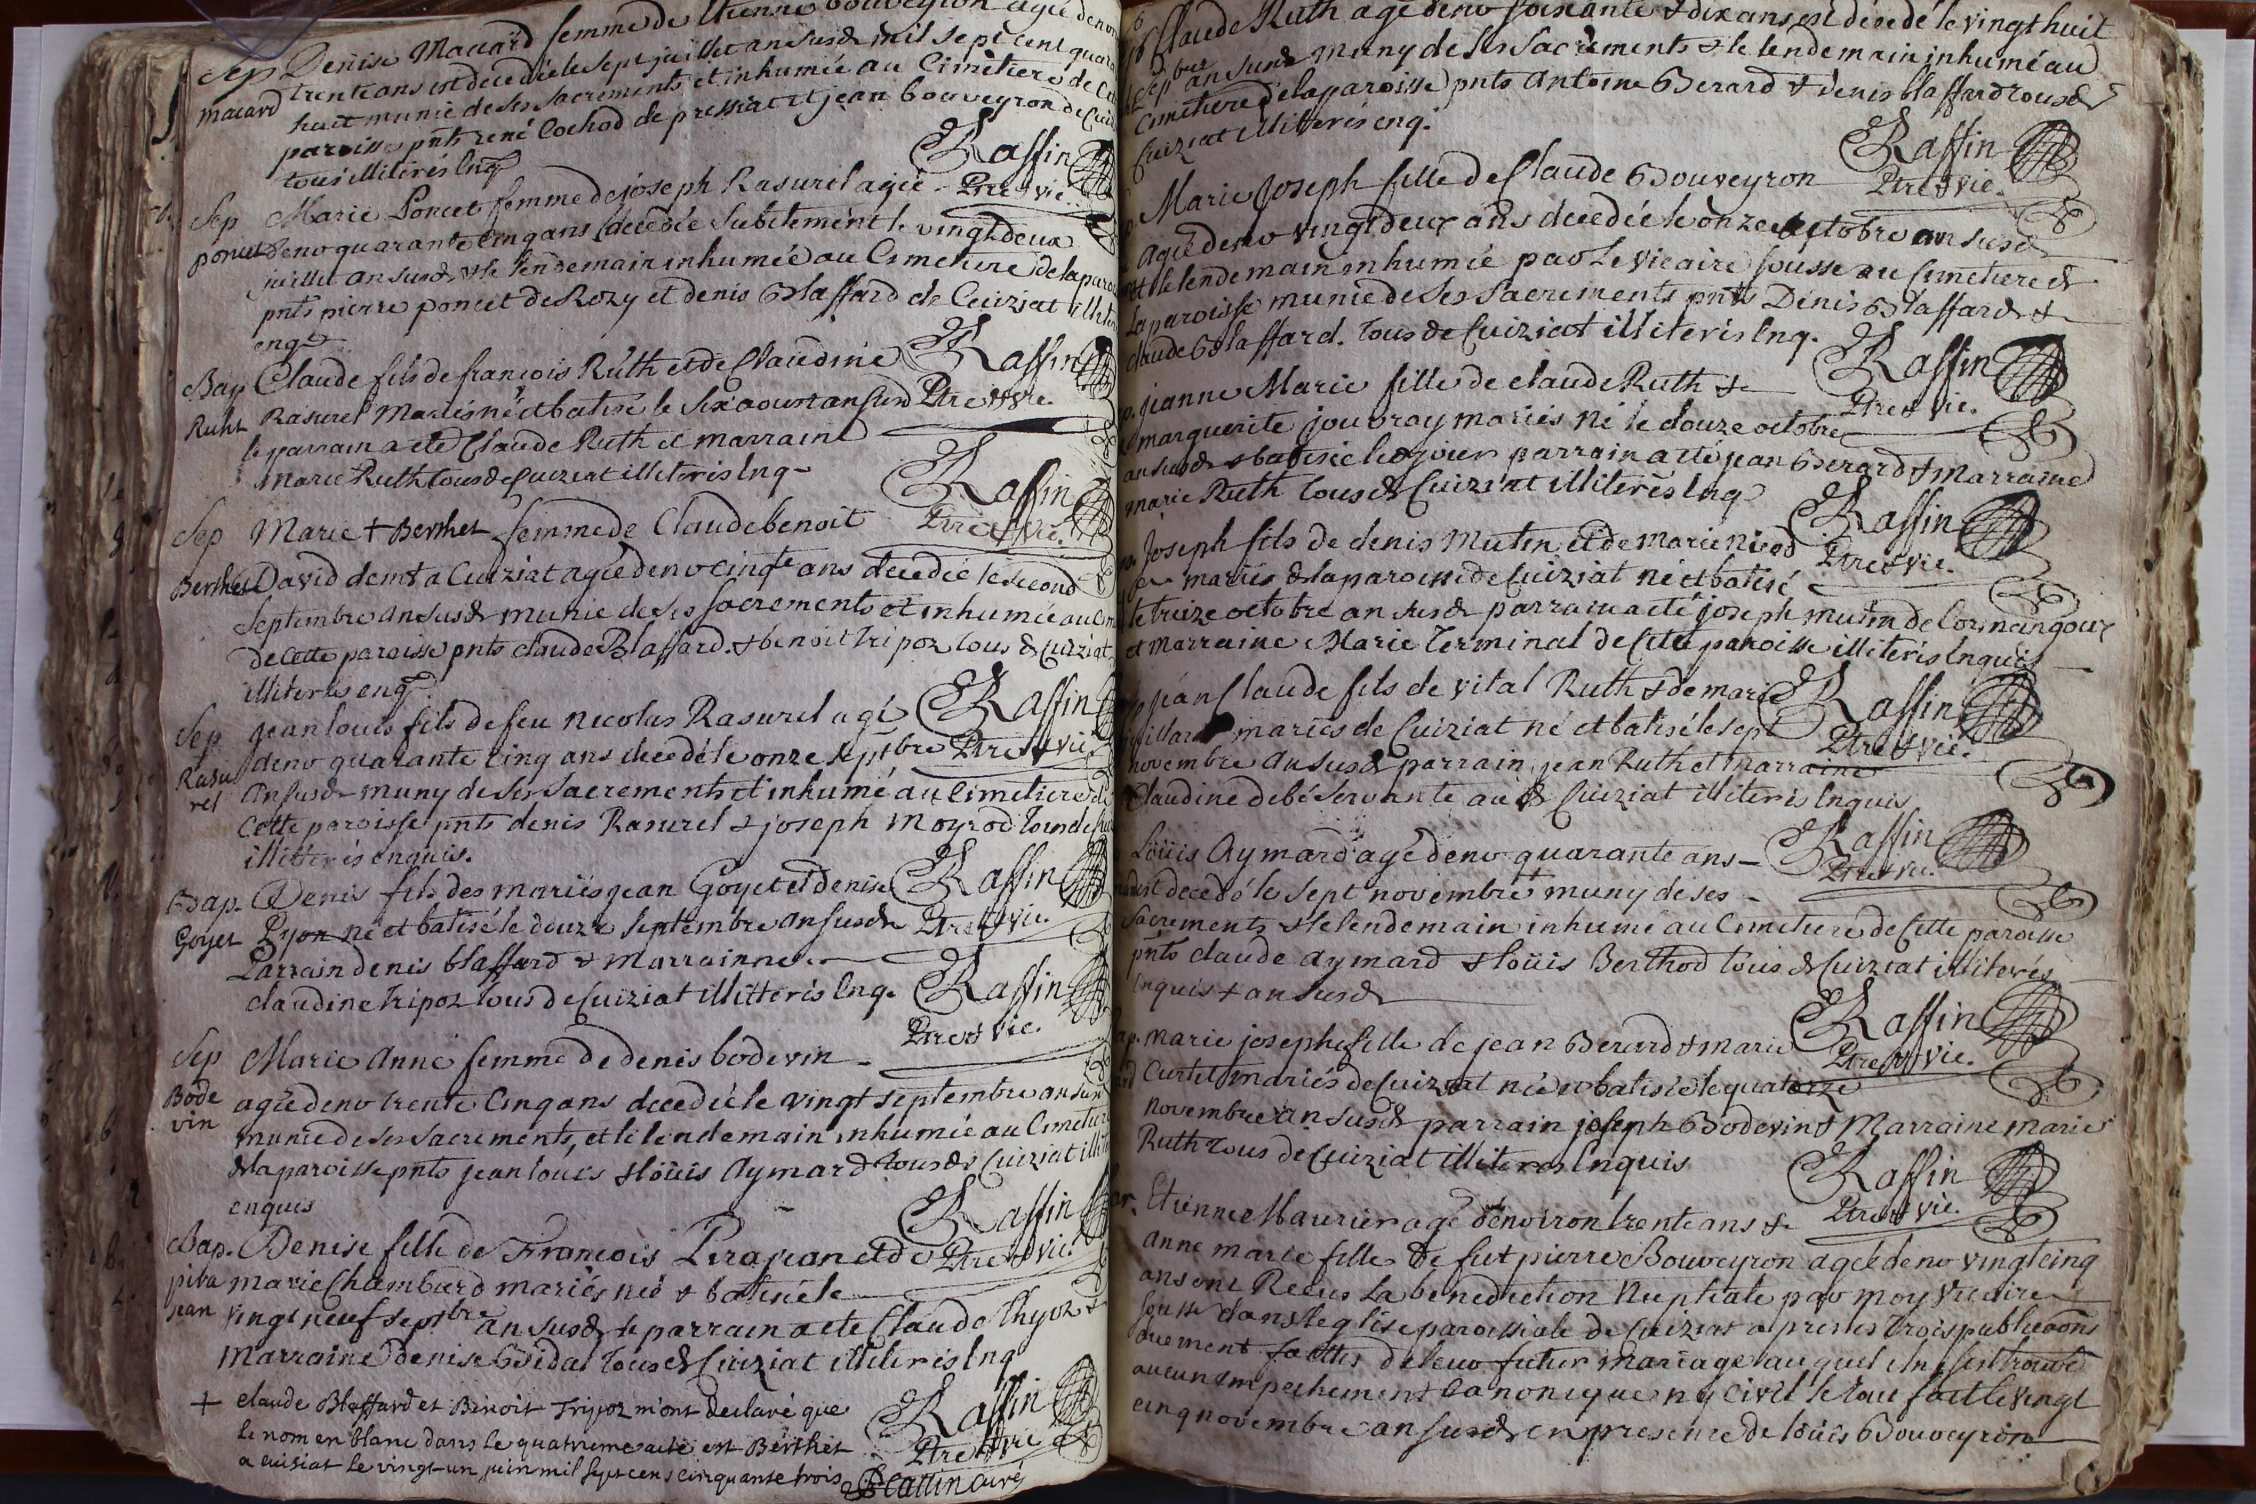 Sep Denise Macard femme de Etienne bouveyron agée denv
macard trente ans est decedée le sept juillet an susd mil sept cent quara
huit munie de ses sacrements et inhumée au Cimetiere de
paroisse pnts rené Cochod de pressiat et jean bouveyron de Cuiz
tous illiterés Enq
Raffin
Ptre et vic.
Sep Marie Poncet femme de joseph Rasurel agée
poncet denv quarante Cinq ans decedée subitement le vingt deux
juillet an susd & le lendemain inhumée au Cimetiere de la paroi
pnts pierre poncet de Rozy et denis Blaffard de Cuiziat illiter
enq
Raffin
Ptre et vic.
Bap Claude fils de francois Ruth et de Claudine
Ruht Rasurel Mariés né et batisé le six aoust an susd
le parrain a eté Claude Ruth et marraine
Marie Ruth tous de Cuiziat illiterés Enq
Raffin
Ptre et vic.
Sep Marie + Berthet femme de Claude benoit
Berthet David demt a Cuiziat agée denv cinqte ans decedée le second
Septembre an susd munie de ses sacrements et inhumée au Cim
de Cette paroisse pnts claude Blaffard & benoit tripoz tous de Cuiziat
illiterés enq
Raffin
Ptre et vic.
Sep jean louis fils de feu Nicolas Rasurel agé
Rasu denv quarante Cinq ans decedé le onze septbre
rel an susd muny de ses Sacrements et inhumé au Cimetiere de
Cette paroisse pnts denis Rasurel & joseph Moyrod tous de
illiterés enquis.
Raffin
Ptre et vic.
Bap. Denis fils des mariés jean Goyet et denise
Goyet Pyon né et batisé le douze septembre an susd
Parrain denis blaffard & Marrainne
claudine Tripoz tous de Cuiziat illitterés Enq.
Raffin
Ptre et vic.
Sep Marie Anne femme de denis bodevin
Bode agée denv trente Cinq ans decedée le vingt septembre an sus
vin munie de ses sacrements, et le lendemain inhumée au Cimetiere
de la paroisse pnts jean louis & loüis Aymard tous de Cuiziat illite
enquis
Raffin
Ptre et vic.
Bap. Denise fille de Francois Pirajean et de
pira marie Chambard mariés née & batisée le
jean vingt neuf septbre an susd le parrain a eté Claude Thyoz &
Marraine denise Vidal tous de Cuiziat illiterés Enq
Raffin
Ptre et vic
+ claude Blaffard et Benoit Tripoz m'ont declaré que
le nom en blanc dans le quatrieme acte est Berthet
a cuisiat le vingt un juin mil sept cens cinquante trois
Cattin curé
Claude Ruth agé denv soixante & dix ans est décedé le vingt huit
Sepbre an susd muny de ses Sacrements & le lendemain inhumé au
Cimetiere de la paroisse pnts Antoine Berard & denis blaffard tous de
Cuiziat illiterés enq.
Raffin
Ptre et vic.
Marie Joseph fille de Claude Bouveyron
agée denv vingt deux ans decedée le onze octobre an susd
et le lendemain inhumée par Le vicaire sousse au Cimetiere de
La paroisse munie de ses sacrements pnts Denis Blaffard &
claude Blaffard. tous de Cuiziat illiterés Enq.
Raffin
Ptre et vic.
jeanne Marie fille de claude Ruth &
marguerite jouvray mariés né le douze octobre
an susd & batisée le parrain a eté jean Berard & Marraine
marie Ruth tous de Cuiziat illiterés Enq
Raffin
Ptre et vic.
Joseph fils de denis Mutin et de marie Nicod
mariés de la paroisse de Cuiziat né et batisé
le treize octobre an susd parrain a eté joseph mutin de Cormangoux
et marraine Marie Terminal de Cette paroisse illiterés Enquis
Raffin
Ptre et vic.
jean Claude fils de vital Ruth & de marie
mariés de Cuiziat né et batisé le sept
novembre an susd parrain jean Ruth et marraine
Claudine debé servante au de Cuiziat illiterés Enquis
Raffin
Ptre et vic.
Loüis Aymard agé denv quarante ans
est decedé le sept novembre muny de ses
sacrements & le lendemain inhumé au Cimetiere de Cette paroisse
pnts claude aymard & loüis Berthod tous de Cuiziat illiterés
Enquis & an susd
Raffin
Ptre et vic.
marie josephe fille de jean Berard & marie
Curtet mariés de Cuiziat née & batisée le quatorze
novembre an susd parrain joseph Bodevin & Marraine marie
Ruth tous de Cuiziat illiterés Enquis
Raffin
Ptre et vic.
Etienne Maurier agé denviron trente ans &
anne marie fille de fut pierre Bouveyron agée denv vingt cinq
ans ont Recus La benediction Nuptiale par moy vicaire
sousse dans l'eglise paroissiale de Cuiziat apres les trois publicaons
duement faittes de leur futur mariage auquel il ne s'est trouvé
aucun empechement Canonique ny civil le tout fait le vingt
cinq novembre an susd en presence de loüis Bouveyron